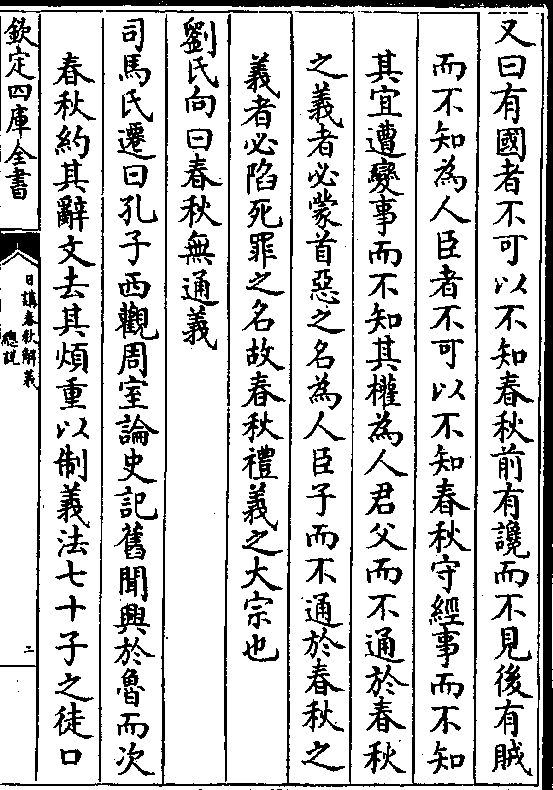 又曰有國者不可以不知春秋前有讒而不見後有賊
而不知為人臣者不可以不知春秋守經事而不知
其宜遭變事而不知其權為人君父而不通於春秋
之義者必蒙首惡之名為人臣子而不通於春秋之
義者必陷死罪之名故春秋禮義之大宗也
劉氏向曰春秋無通義
司馬氏遷曰孔子西觀周室論史記舊聞興於魯而次
春秋約其辭文去其煩重以制義法七十子之徒口
欽定四庫全書
日講春秋解義
總說
二